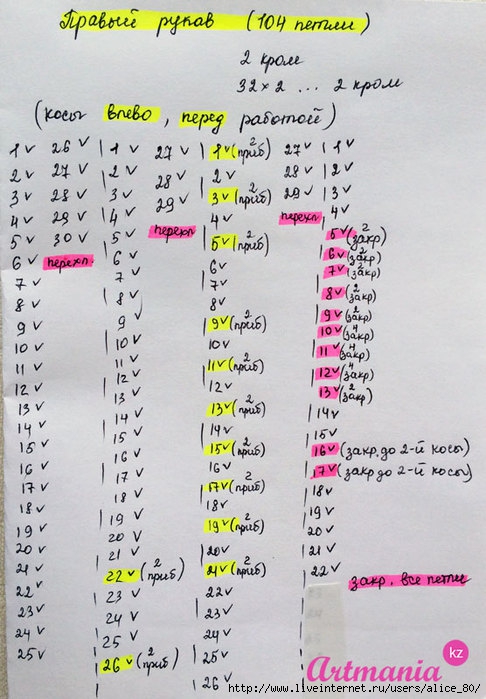 Правый рукав (104 петли)
2 кром
32×2 ... 2 кром
(косы влево, перед работой)
1 ✓
2 ✓
3 ✓
4 ✓
5 ✓
6 ✓
7 ✓
8 ✓
9 ✓
10 ✓
11 ✓
12 ✓
13 ✓
14 ✓
15 ✓
16 ✓
17 ✓
18 ✓
19 ✓
20 ✓
21 ✓
22 ✓
23 ✓
24 ✓
25 ✓
26 ✓
27 ✓
28 ✓
29 ✓
30 ✓
перехл.
1 ✓
2 ✓
3 ✓
4 ✓
5 ✓
6 ✓
7 ✓
8 ✓
9 ✓
10 ✓
11 ✓
12 ✓
13 ✓
14 ✓
15 ✓
16 ✓
17 ✓
18 ✓
19 ✓
20 ✓
21 ✓
22 ✓ (2 приб)
23 ✓
24 ✓
25 ✓
26 ✓ (2 приб)
27 ✓
28 ✓
29 ✓
перехл
1 ✓ (2 приб)
2 ✓
3 ✓ (2 приб)
4 ✓
5 ✓ (2 приб)
6 ✓
7 ✓
8 ✓
9 ✓ (2 приб)
10 ✓
11 ✓ (2 приб)
12 ✓
13 ✓ (2 приб)
14 ✓
15 ✓ (2 приб)
16 ✓
17 ✓ (2 приб)
18 ✓
19 ✓ (2 приб)
20 ✓
21 ✓ (2 приб)
22 ✓
23 ✓
24 ✓
25 ✓
26 ✓
27 ✓
28 ✓
29 ✓
перехл
1 ✓
2 ✓
3 ✓
4 ✓
5 ✓ (2 закр)
6 ✓ (2 закр)
7 ✓ (2 закр)
8 ✓ (2 закр)
9 ✓ (2 закр)
10 ✓ (4 закр)
11 ✓ (4 закр)
12 ✓ (4 закр)
13 ✓ (2 закр)
14 ✓
15 ✓
16 ✓ (закр. до 2-й косы)
17 ✓ (закр до 2-й косы)
18 ✓
19 ✓
20 ✓
21 ✓
22 ✓
закр. все петли
Artmania kz
http://www.liveinternet.ru/users/alice_80/